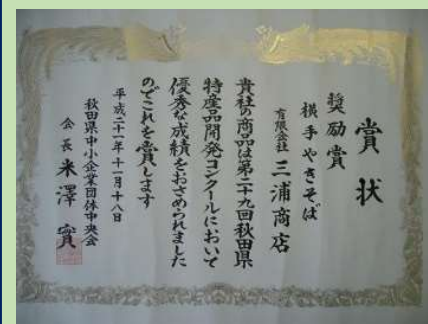 賞状
奨励賞
横手やきそば
有限会社 三浦商店
貴社の商品は第二十九回秋田県
特産品開発コンクールにおいて
優秀な成績をおさめられました
のでこれを賞します
平成二十一年十一月十八日
秋田県中小企業団体中央会
会長 米澤 實